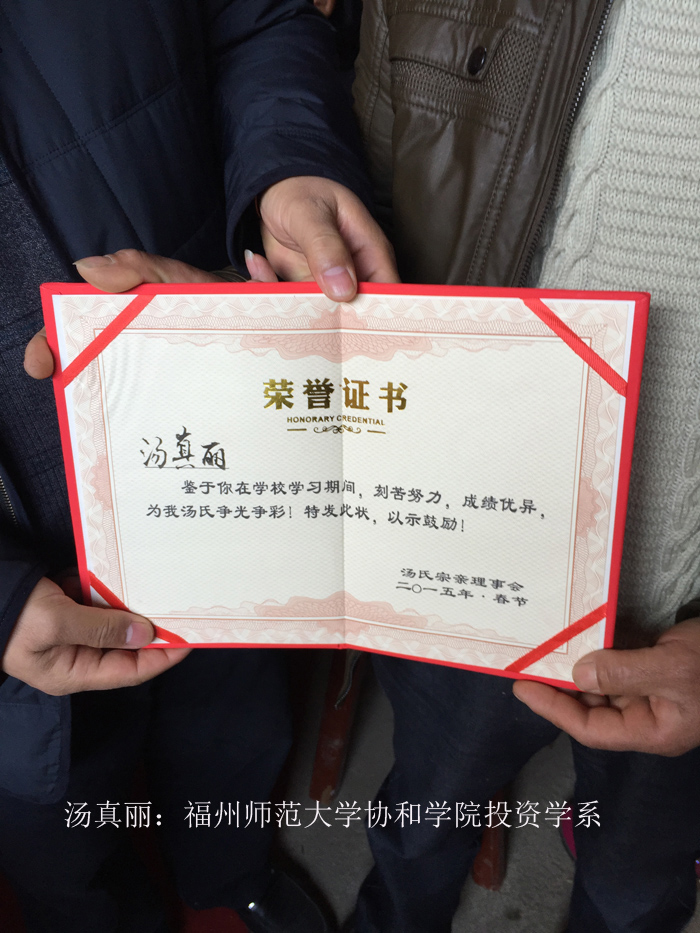 荣誉证书
HONORARY CREDENTIAL
汤真丽
鉴于你在学校学习期间，刻苦努力，成绩优异，
为我汤氏争光争彩！特发此状，以示鼓励！
汤氏宗亲理事会
二〇一五年·春节
汤真丽：福州师范大学协和学院投资学系